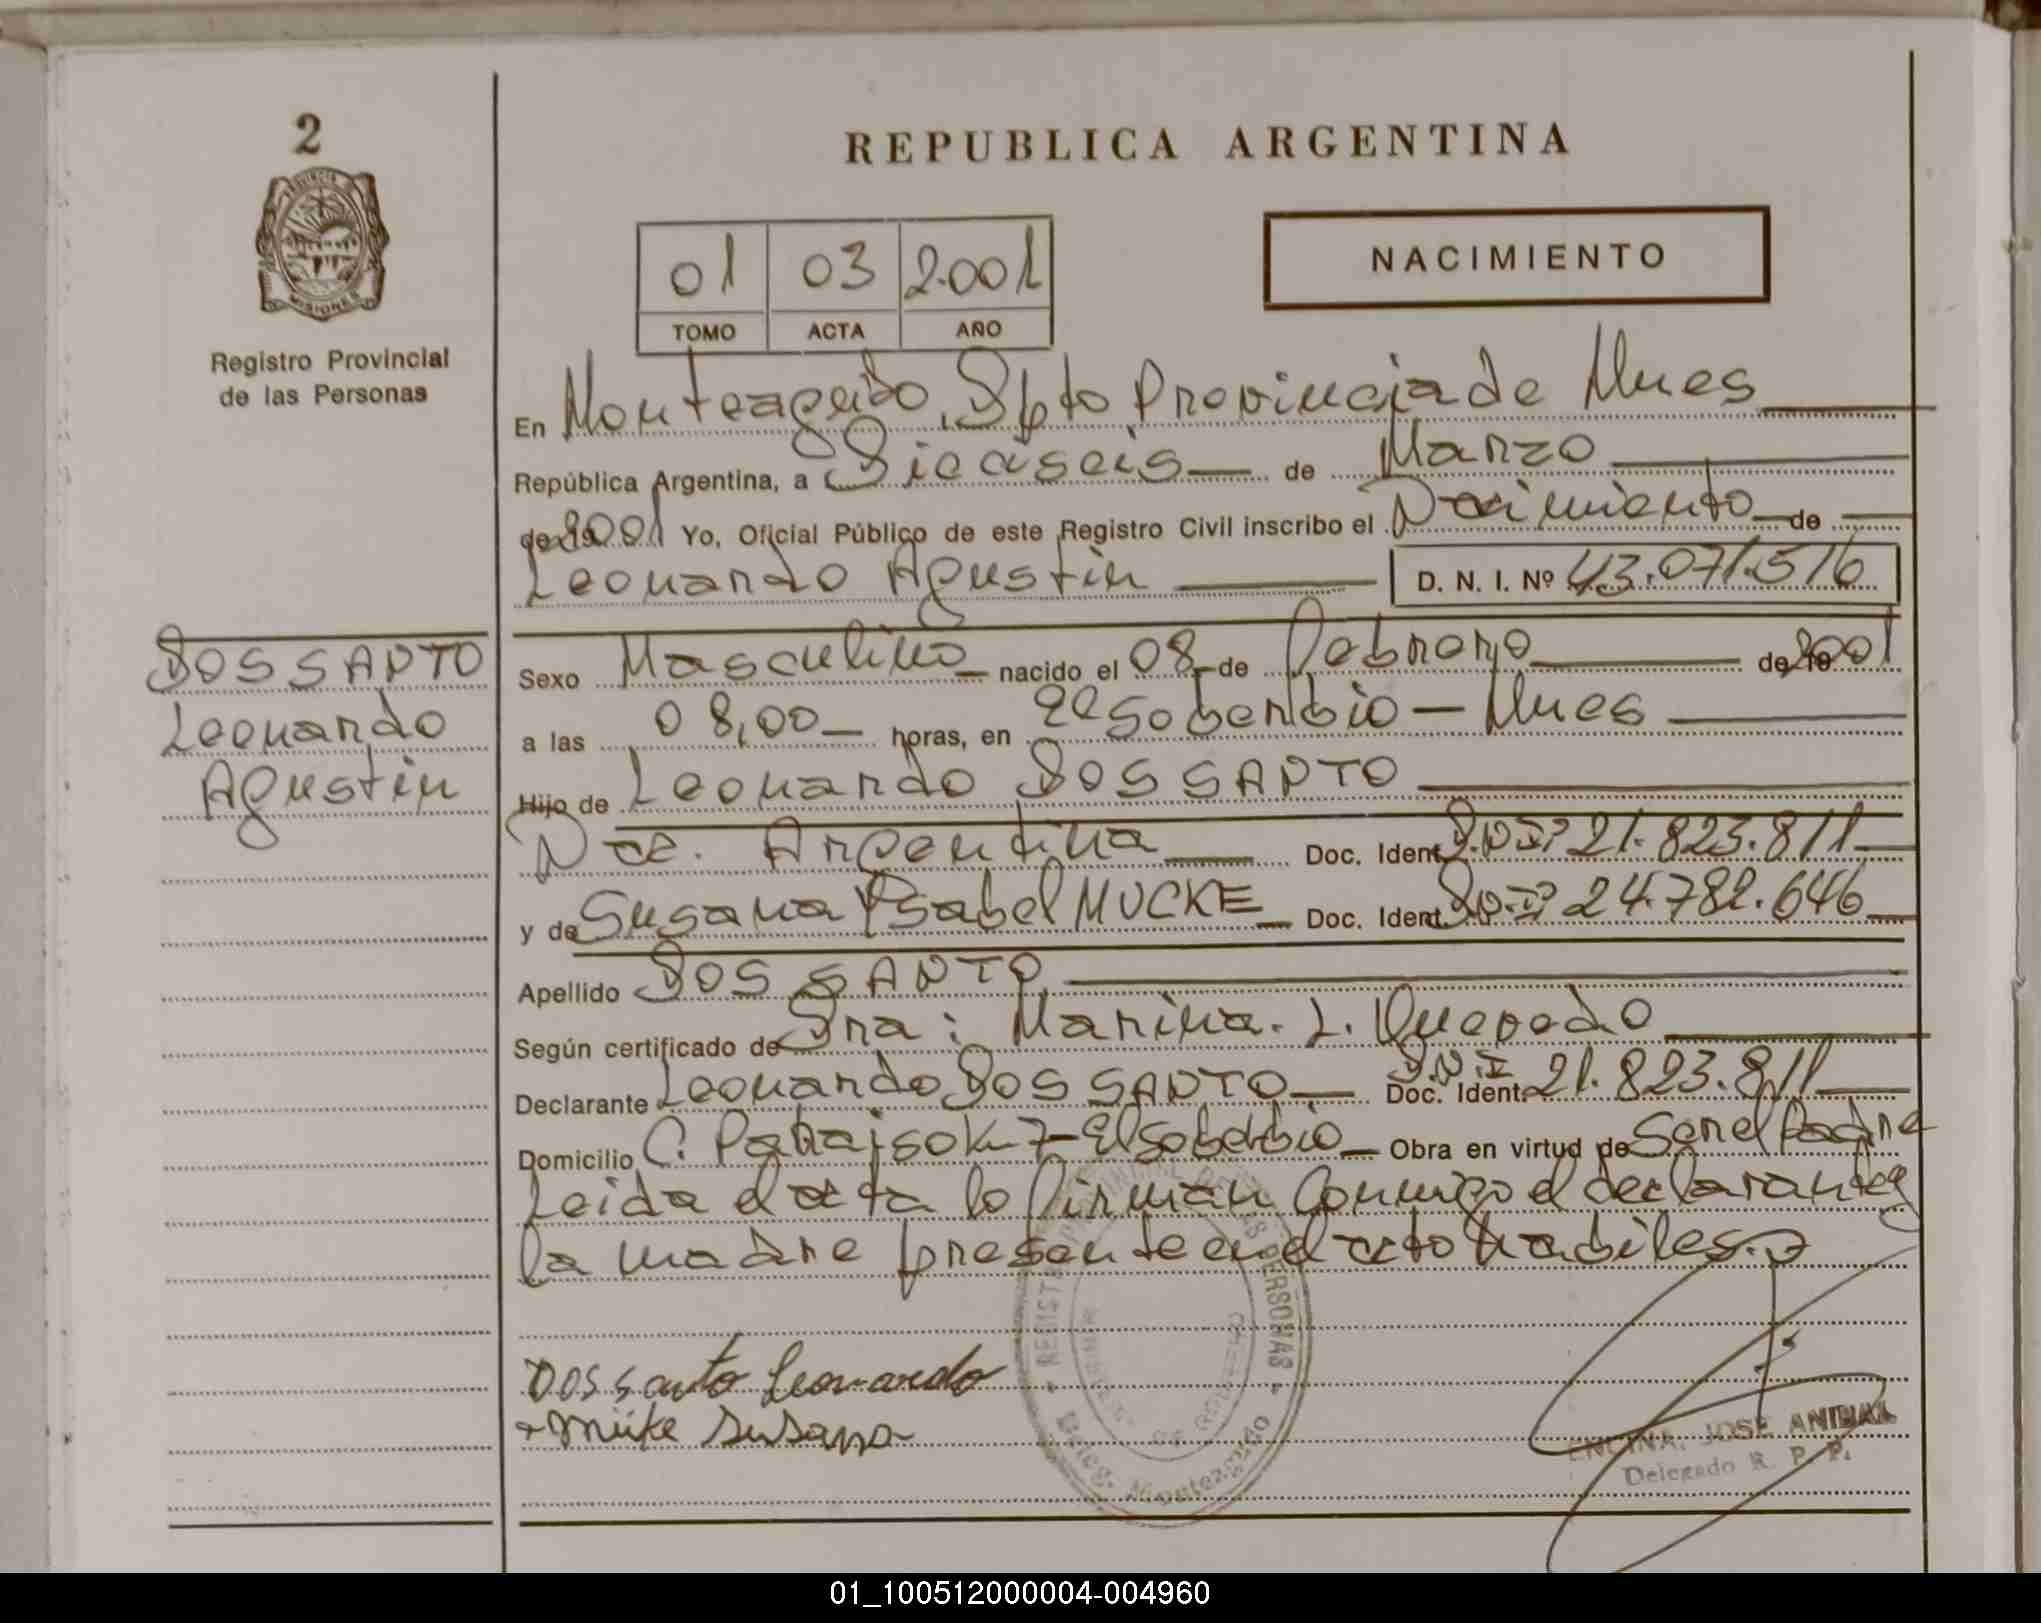 2
PROVINCIA D
MISIONES
Registro Provincial
de las Personas
DOS SANTO
Leonardo
Agustin
REPUBLICA ARGENTINA
01 03 2.001
TOMO ACTA AÑO
NACIMIENTO
En Monteagudo, Dpto Provincia de Mnes
República Argentina, a Dieciseis de Marzo
de 2001 Yo, Oficial Público de este Registro Civil inscribo el Nacimiento de
Leonardo Agustin D. N. I. Nº 43.071.516
Sexo Masculino nacido el 08 de Febrero de 2001
a las 08,00 horas, en El Soberbio - Mnes
Hijo de Leonardo DOS SANTO
Nac. Argentina Doc. Ident. D.N.I. 21.823.811
y de Susana Ysabel MUCKE Doc. Ident. D.N.I. 24.782.646
Apellido DOS SANTO
Según certificado de Dra: Marina. L. Quevedo
Declarante Leonardo DOS SANTO Doc. Ident. D.N.I 21.823.811
Domicilio C. Paraiso K 7 - El Soberbio Obra en virtud de Ser el Padre
Leida el acta lo firman Conmigo el declarante y
la madre presente en el acto habiles.
Dos santo Leonardo
Müke Susana
REGISTRO PROVINCIAL DE LAS PERSONAS
Deleg. Monteagudo
ENCINA, JOSE ANIBAL
Delegado R. P. P.
01_100512000004-004960